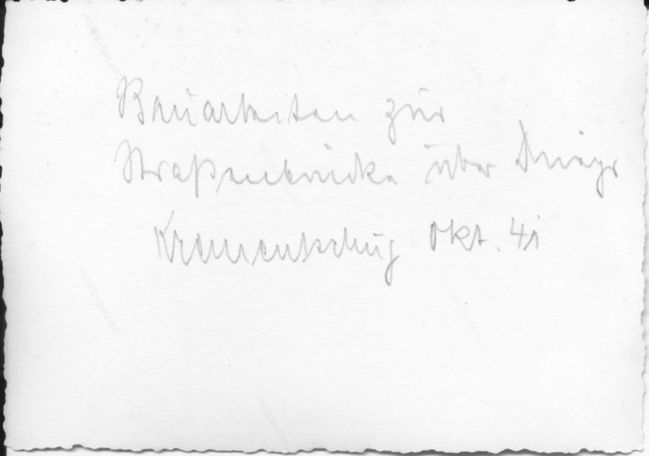 Bauarbeiten zur
Straßenbrücke über Dniepr
Krementschug Okt. 41